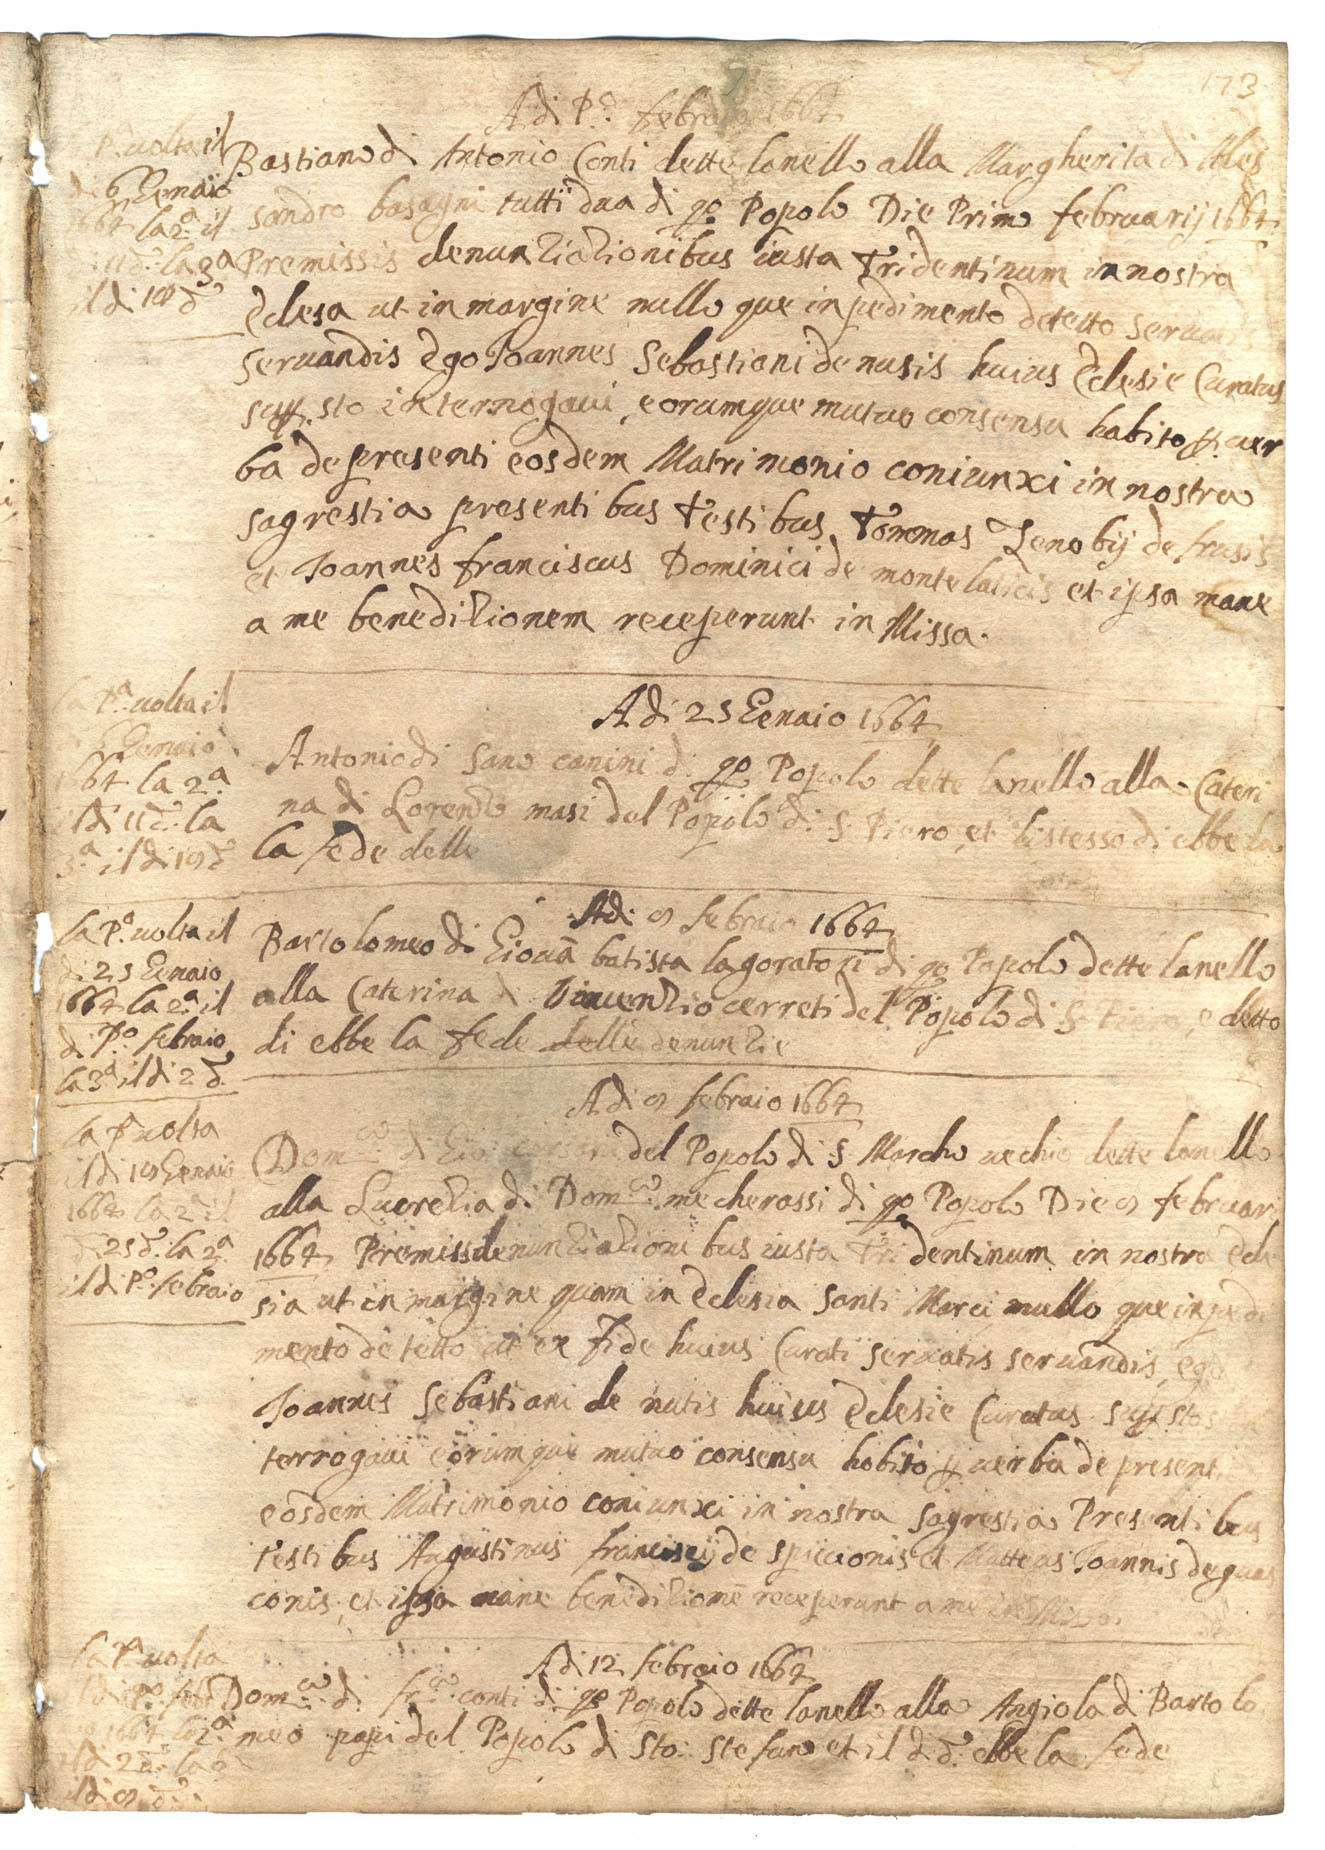 173
Adi P.º febraio 1664
P.ª uolta il
di 6 Genaio
1664 la 2.ª il
di 11 d.º la 3.ª
il di 19 d.º
Bastiano di Antonio Conti dette lanello alla Margherita di Ales
sandro basagni tutti dua di qo Popolo Die Primo februarij 1664
Premissis denuntiationibus iusta Tridentinum in nostra
Eclesa ut in margine nullo que inpedimento detetto seruatis
seruandis Ego Joannes Sebastiani de nutis huius Eclesie Curatus
supr.sto interrogaui, eorumque mutuo consensu habito p. uer
ba de presenti eosdem Matrimonio coniunxi in nostra
sagrestia presentibus testibus Tommas Zenobij de frasis
et Joannes franciscus Dominici de monte laticis et ipsa mane
a me beneditionem receperunt in Missa.
la P.ª uolta il
Genaio
1664 la 2.ª
il di 11 d.º la
3.ª il di 19 d.º
Adi 25 Genaio 1664
Antonio di Sano canini di qo Popolo dette lanello alla Cateri
na di Lorenzo masi del Popolo di S. Piero, et listesso di ebbe la
la fede delle
la P.ª uolta il
di 25 Genaio
1664 la 2.ª il
di P.º febraio
la 3.ª il di 2 d.
Adi 9 febraio 1664
Bartolomeo di Giouã batista lagoratori di qo Popolo dette lanello
alla Caterina di Vincenzio cerreti del Popolo di S. Piero, e detto
di ebbe la fede delle denunzie
la P.ª uolta
il di 19 Genaio
1664 la 2.ª il
di 25 d.º la 2.ª
il di P.º febraio
Adi 9 febraio 1664
Dom.co di Gio: corsori del Popolo di S Marcho uechio dette lanello
alla Lucretia di Dom.co mecherassi di qo Popolo Die 9 februari
1664 Premiss denuntiationi bus iusta tridentinum in nostra Ecle
sia ut in margine quam in Eclesia Santi Marci nullo que inpedi
mento detetto ut ex fide huius Curati seruatis seruandis, ego
Joannes Sebastiani de nutis huius Eclesie Curatus supr.stos
terrogaui eorumque mutuo consensu habito p uerba de present
eosdem Matrimonio coniunxi in nostra sagrestia Presentibus
testibus Augustinus francisci de spiccionis et Matteus Joannis de guas
conis, et ipsa mane beneditionẽ receperunt a me in Missa.
la P.ª uolta
il di P.º feb
1664 la 2.ª
il di 2 d.º la
il di 9 d.º
Adi 12 febraio 1664
Dom.co di fr.co conti di qo Popolo dette lanello alla Angiola di Bartolo
meo papi del Popolo di Sto: Stefano et il d d.º ebbe la fede